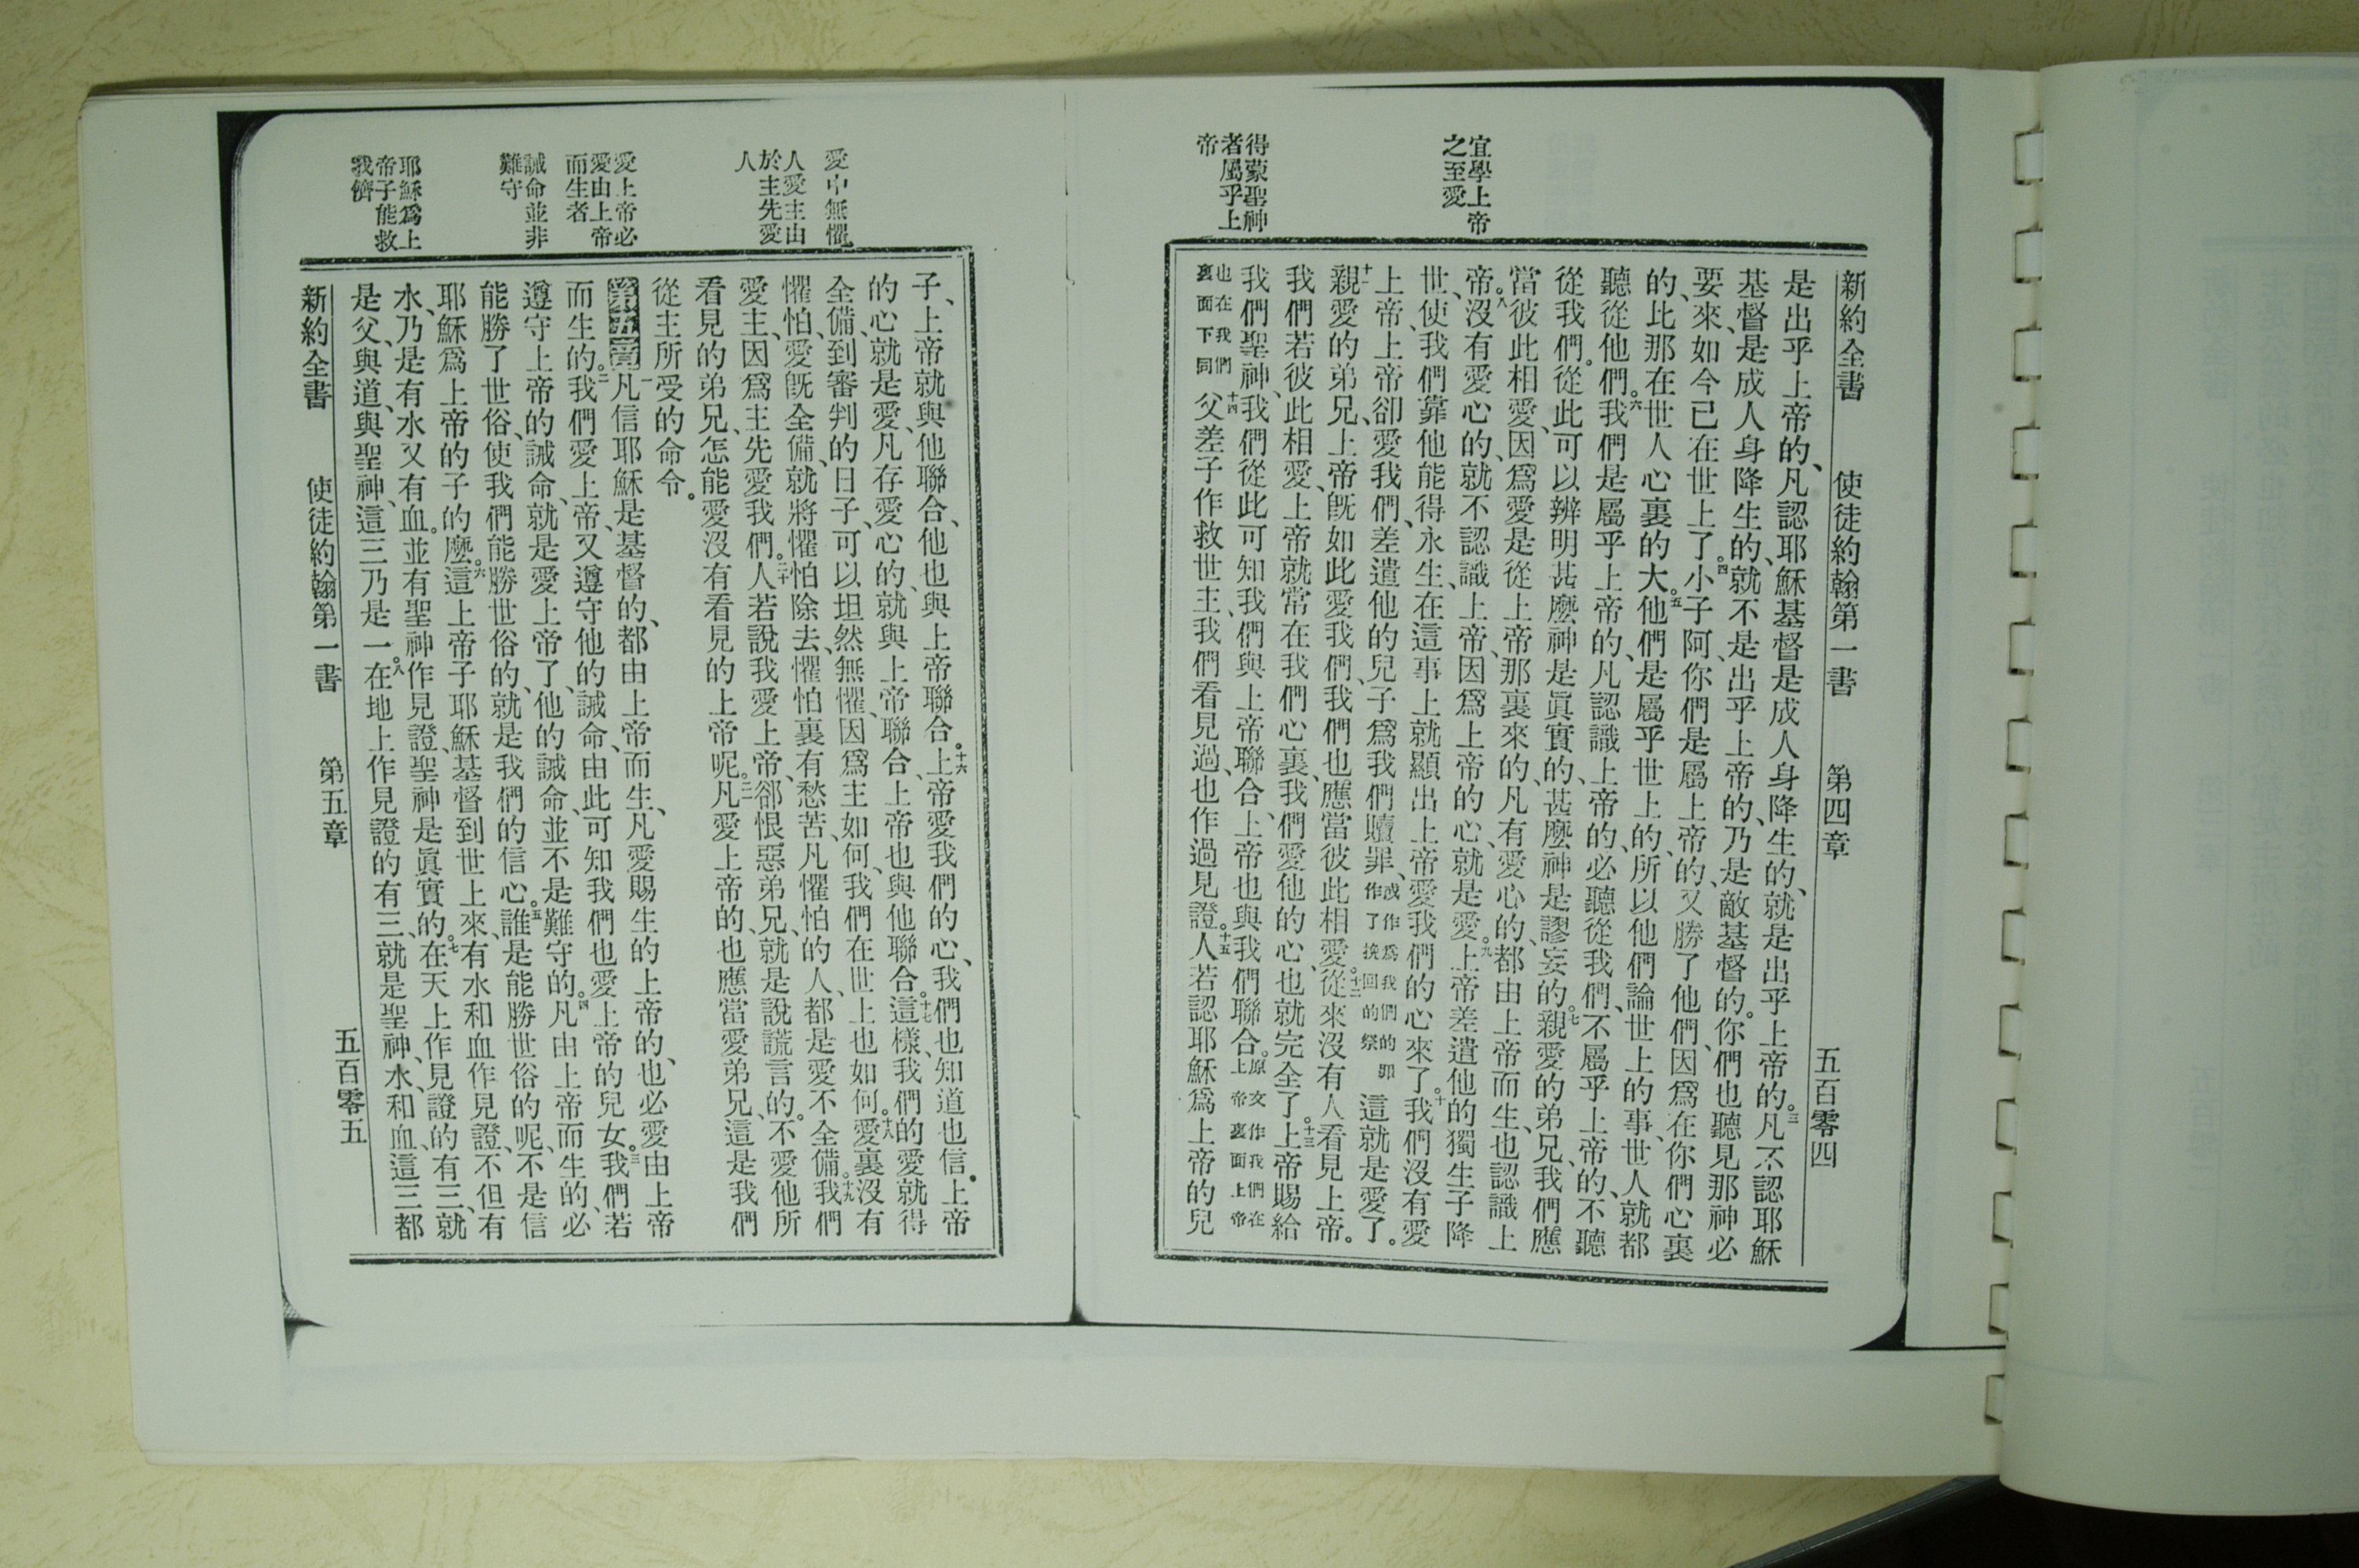 宜學上帝
之至愛
得蒙聖神
者屬乎上
帝
新約全書　使徒約翰第一書　第四章　五百零四
是出乎上帝的、凡認耶穌基督是成人身降生的、就是出乎上帝的。三凡不認耶穌
基督是成人身降生的、就不是出乎上帝的、乃是敵基督的。你們也聽見那神必
要來、如今已在世上了。四小子阿、你們是屬上帝的、又勝了他們、因爲在你們心裏
的、比那在世人心裏的大。五他們是屬乎世上的、所以他們論世上的事、世人就都
聽從他們。六我們是屬乎上帝的、凡認識上帝的、必聽從我們、不屬乎上帝的、不聽
從我們。從此可以辨明甚麼神是眞實的、甚麼神是謬妄的。七親愛的弟兄、我們應
當彼此相愛、因爲愛是從上帝那裏來的、凡有愛心的、都由上帝而生、也認識上
帝。八沒有愛心的、就不認識上帝、因爲上帝的心、就是愛。九上帝差遣他的獨生子降
世、使我們靠他能得永生、在這事上就顯出上帝愛我們的心來了。十我們沒有愛
上帝、上帝卻愛我們、差遣他的兒子爲我們贖罪、或作爲我們的罪作了挽回的祭這就是愛了。
十一親愛的弟兄、上帝旣如此愛我們、我們也應當彼此相愛。十二從來沒有人看見上帝。
我們若彼此相愛、上帝就常在我們心裏、我們愛他的心、也就完全了。十三上帝賜給
我們聖神、我們從此可知我們與上帝聯合、上帝也與我們聯合。原文作我們在上帝裏面上帝
也在我們裏面下同十四父差子作救世主、我們看見過、也作過見證。十五人若認耶穌爲上帝的兒
愛中無懼
人愛主由
於主先愛
人
愛上帝必
愛由上帝
而生者
誡命並非
難守
耶穌爲上
帝子能救
我儕
子、上帝就與他聯合、他也與上帝聯合。十六上帝愛我們的心、我們也知道也信。上帝
的心、就是愛、凡存愛心的、就與上帝聯合、上帝也與他聯合。十七這樣、我們的愛就得
全備、到審判的日子、可以坦然無懼、因爲主如何、我們在世上也如何。十八愛裏沒有
懼怕、愛旣全備、就將懼怕除去、懼怕裏有愁苦、凡懼怕的人、都是愛不全備。十九我們
愛主、因爲主先愛我們。二十人若說我愛上帝、卻恨惡弟兄、就是說謊言的。不愛他所
看見的弟兄、怎能愛沒有看見的上帝呢。二一凡愛上帝的、也應當愛弟兄、這是我們
從主所受的命令。
第五章一凡信耶穌是基督的、都由上帝而生、凡愛賜生的上帝的、也必愛由上帝
而生的。二我們愛上帝、又遵守他的誡命、由此可知我們也愛上帝的兒女。三我們若
遵守上帝的誡命、就是愛上帝了、他的誡命、並不是難守的。四凡由上帝而生的、必
能勝了世俗、使我們能勝世俗的、就是我們的信心。五誰是能勝世俗的呢、不是信
耶穌爲上帝的子的麼。六這上帝子耶穌基督到世上來、有水和血作見證、不但有
水、乃是有水又有血。並有聖神作見證、聖神是眞實的。七在天上作見證的有三、就
是父、與道、與聖神、這三乃是一。八在地上作見證的有三、就是聖神、水、和血、這三都
新約全書　使徒約翰第一書　第五章　五百零五